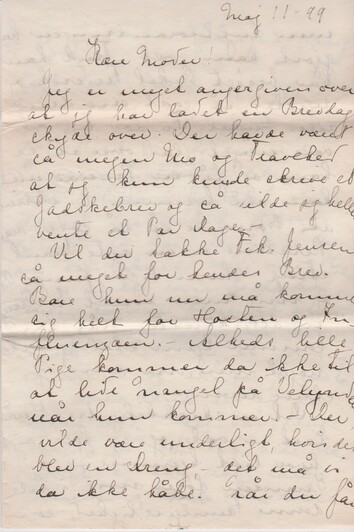 Maj 11-99
Kære Moder!
Jeg er meget angergiven over
at jeg har ladet en Brevdag
skyde over. Der havde været
så megen Uro og Travlhed
at jeg kun kunde skrive et
Jadskebrev og så vilde jeg hell
vente et Par Dage.
Vil du takke Frk. Jensen
så meget for hendes Brev.
Bare hun nu må komme
sig helt for Hosten og In
fluenzaen. – Alheds lille
Pige kommer da ikke til
at lide mangel på Velynd
når hun kommer. – Der
vilde være underligt, hvis de
blev en Dreng – det må vi
da ikke håbe. Når du får